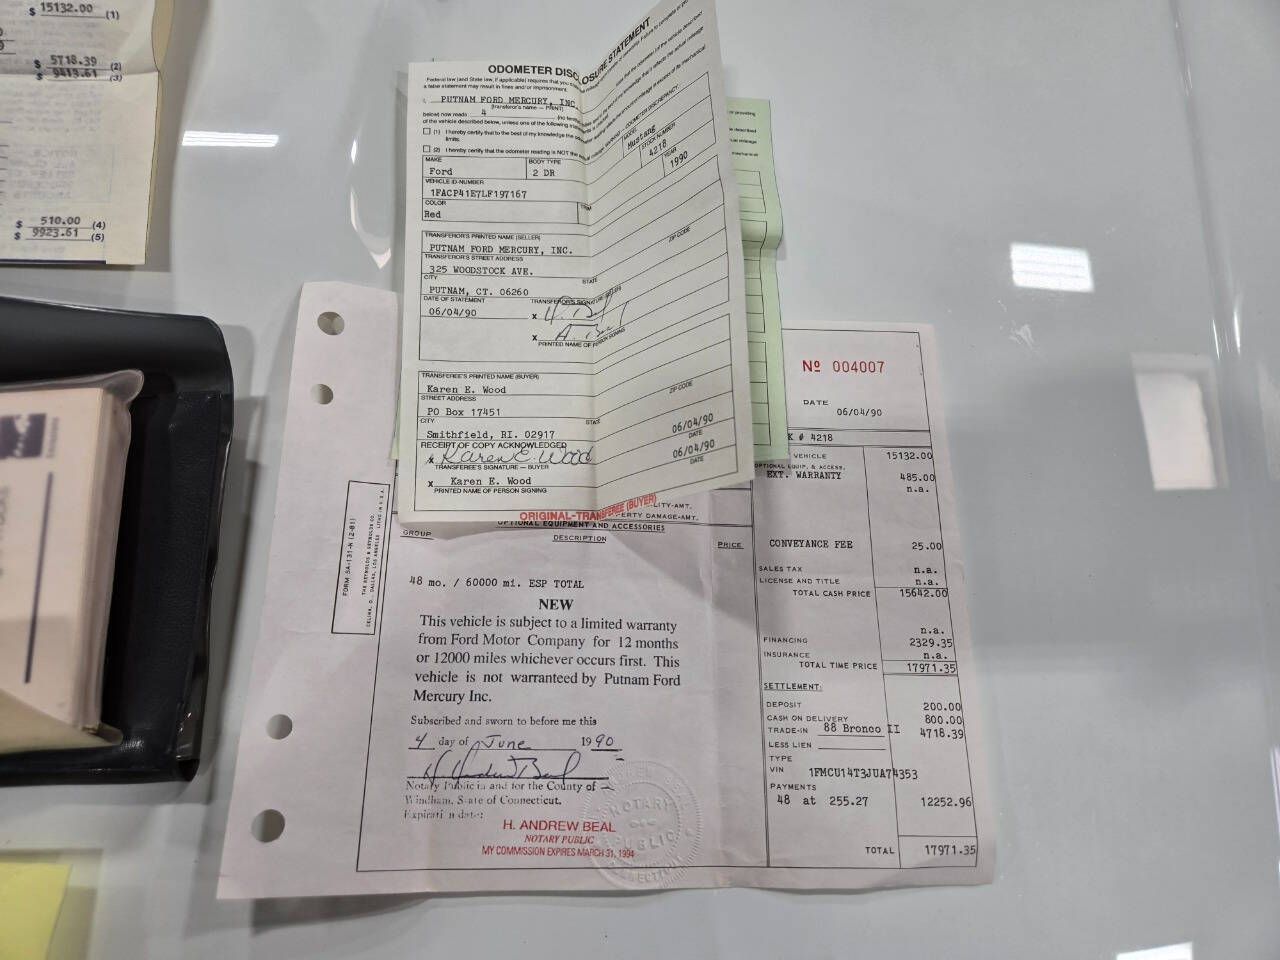 $ 15132.00 (1)
$ 5718.39 (2)
$ 9413.61 (3)
$ 510.00 (4)
$ 9923.61 (5)
ODOMETER DISCLOSURE STATEMENT
Federal law (and State law, if applicable) requires that you
a false statement may result in fines and/or imprisonment.
I, PUTNAM FORD MERCURY, INC.
(transferor's name — PRINT)
below now reads 4 (no tenths)
of the vehicle described below, unless one of the following
(1) I hereby certify that to the best of my knowledge the
limits.
(2) I hereby certify that the odometer reading is NOT the
ODOMETER DISCREPANCY.
MAKE
Ford
BODY TYPE
2 DR
MODEL
Mustang
STOCK NUMBER
4218
VEHICLE ID NUMBER
1FACP41E7LF197167
YEAR
1990
COLOR
Red
TRIM
TRANSFEROR'S PRINTED NAME (SELLER)
PUTNAM FORD MERCURY, INC.
TRANSFEROR'S STREET ADDRESS
325 WOODSTOCK AVE.
CITY
STATE
ZIP CODE
PUTNAM, CT. 06260
DATE OF STATEMENT
06/04/90
TRANSFEROR'S SIGNATURE
X
X
PRINTED NAME OF PERSON SIGNING
TRANSFEREE'S PRINTED NAME (BUYER)
Karen E. Wood
STREET ADDRESS
PO Box 17451
CITY
STATE
ZIP CODE
Smithfield, RI. 02917
RECEIPT OF COPY ACKNOWLEDGED
X Karen E. Wood
06/04/90
TRANSFEREE'S SIGNATURE — BUYER
DATE
X Karen E. Wood
06/04/90
PRINTED NAME OF PERSON SIGNING
DATE
ORIGINAL-TRANSFEREE (BUYER)
Nº 004007
DATE
06/04/90
K # 4218
VEHICLE 15132.00
OPTIONAL EQUIP. & ACCESS.
EXT. WARRANTY 485.00
n.a.
CONVEYANCE FEE 25.00
SALES TAX n.a.
LICENSE AND TITLE n.a.
TOTAL CASH PRICE 15642.00
n.a.
FINANCING 2329.35
INSURANCE n.a.
TOTAL TIME PRICE 17971.35
SETTLEMENT:
DEPOSIT 200.00
CASH ON DELIVERY 800.00
TRADE-IN 88 Bronco II 4718.39
LESS LIEN
TYPE
VIN 1FMCU14T3JUA74353
PAYMENTS
48 at 255.27 12252.96
TOTAL 17971.35
LITY-AMT.
PROPERTY DAMAGE-AMT.
OPTIONAL EQUIPMENT AND ACCESSORIES
GROUP
DESCRIPTION
PRICE
48 mo. / 60000 mi. ESP TOTAL
NEW
This vehicle is subject to a limited warranty
from Ford Motor Company for 12 months
or 12000 miles whichever occurs first. This
vehicle is not warranteed by Putnam Ford
Mercury Inc.
Subscribed and sworn to before me this
4 day of June 1990
Notary Public in and for the County of
Windham, State of Connecticut.
Expiration date:
H. ANDREW BEAL
NOTARY PUBLIC
MY COMMISSION EXPIRES MARCH 31, 1994
NOTARY
PUBLIC
FORM SA-131-N (2-81)
THE REYNOLDS & REYNOLDS CO.
CELINA, O., DALLAS, LOS ANGELES LITHO IN U.S.A.